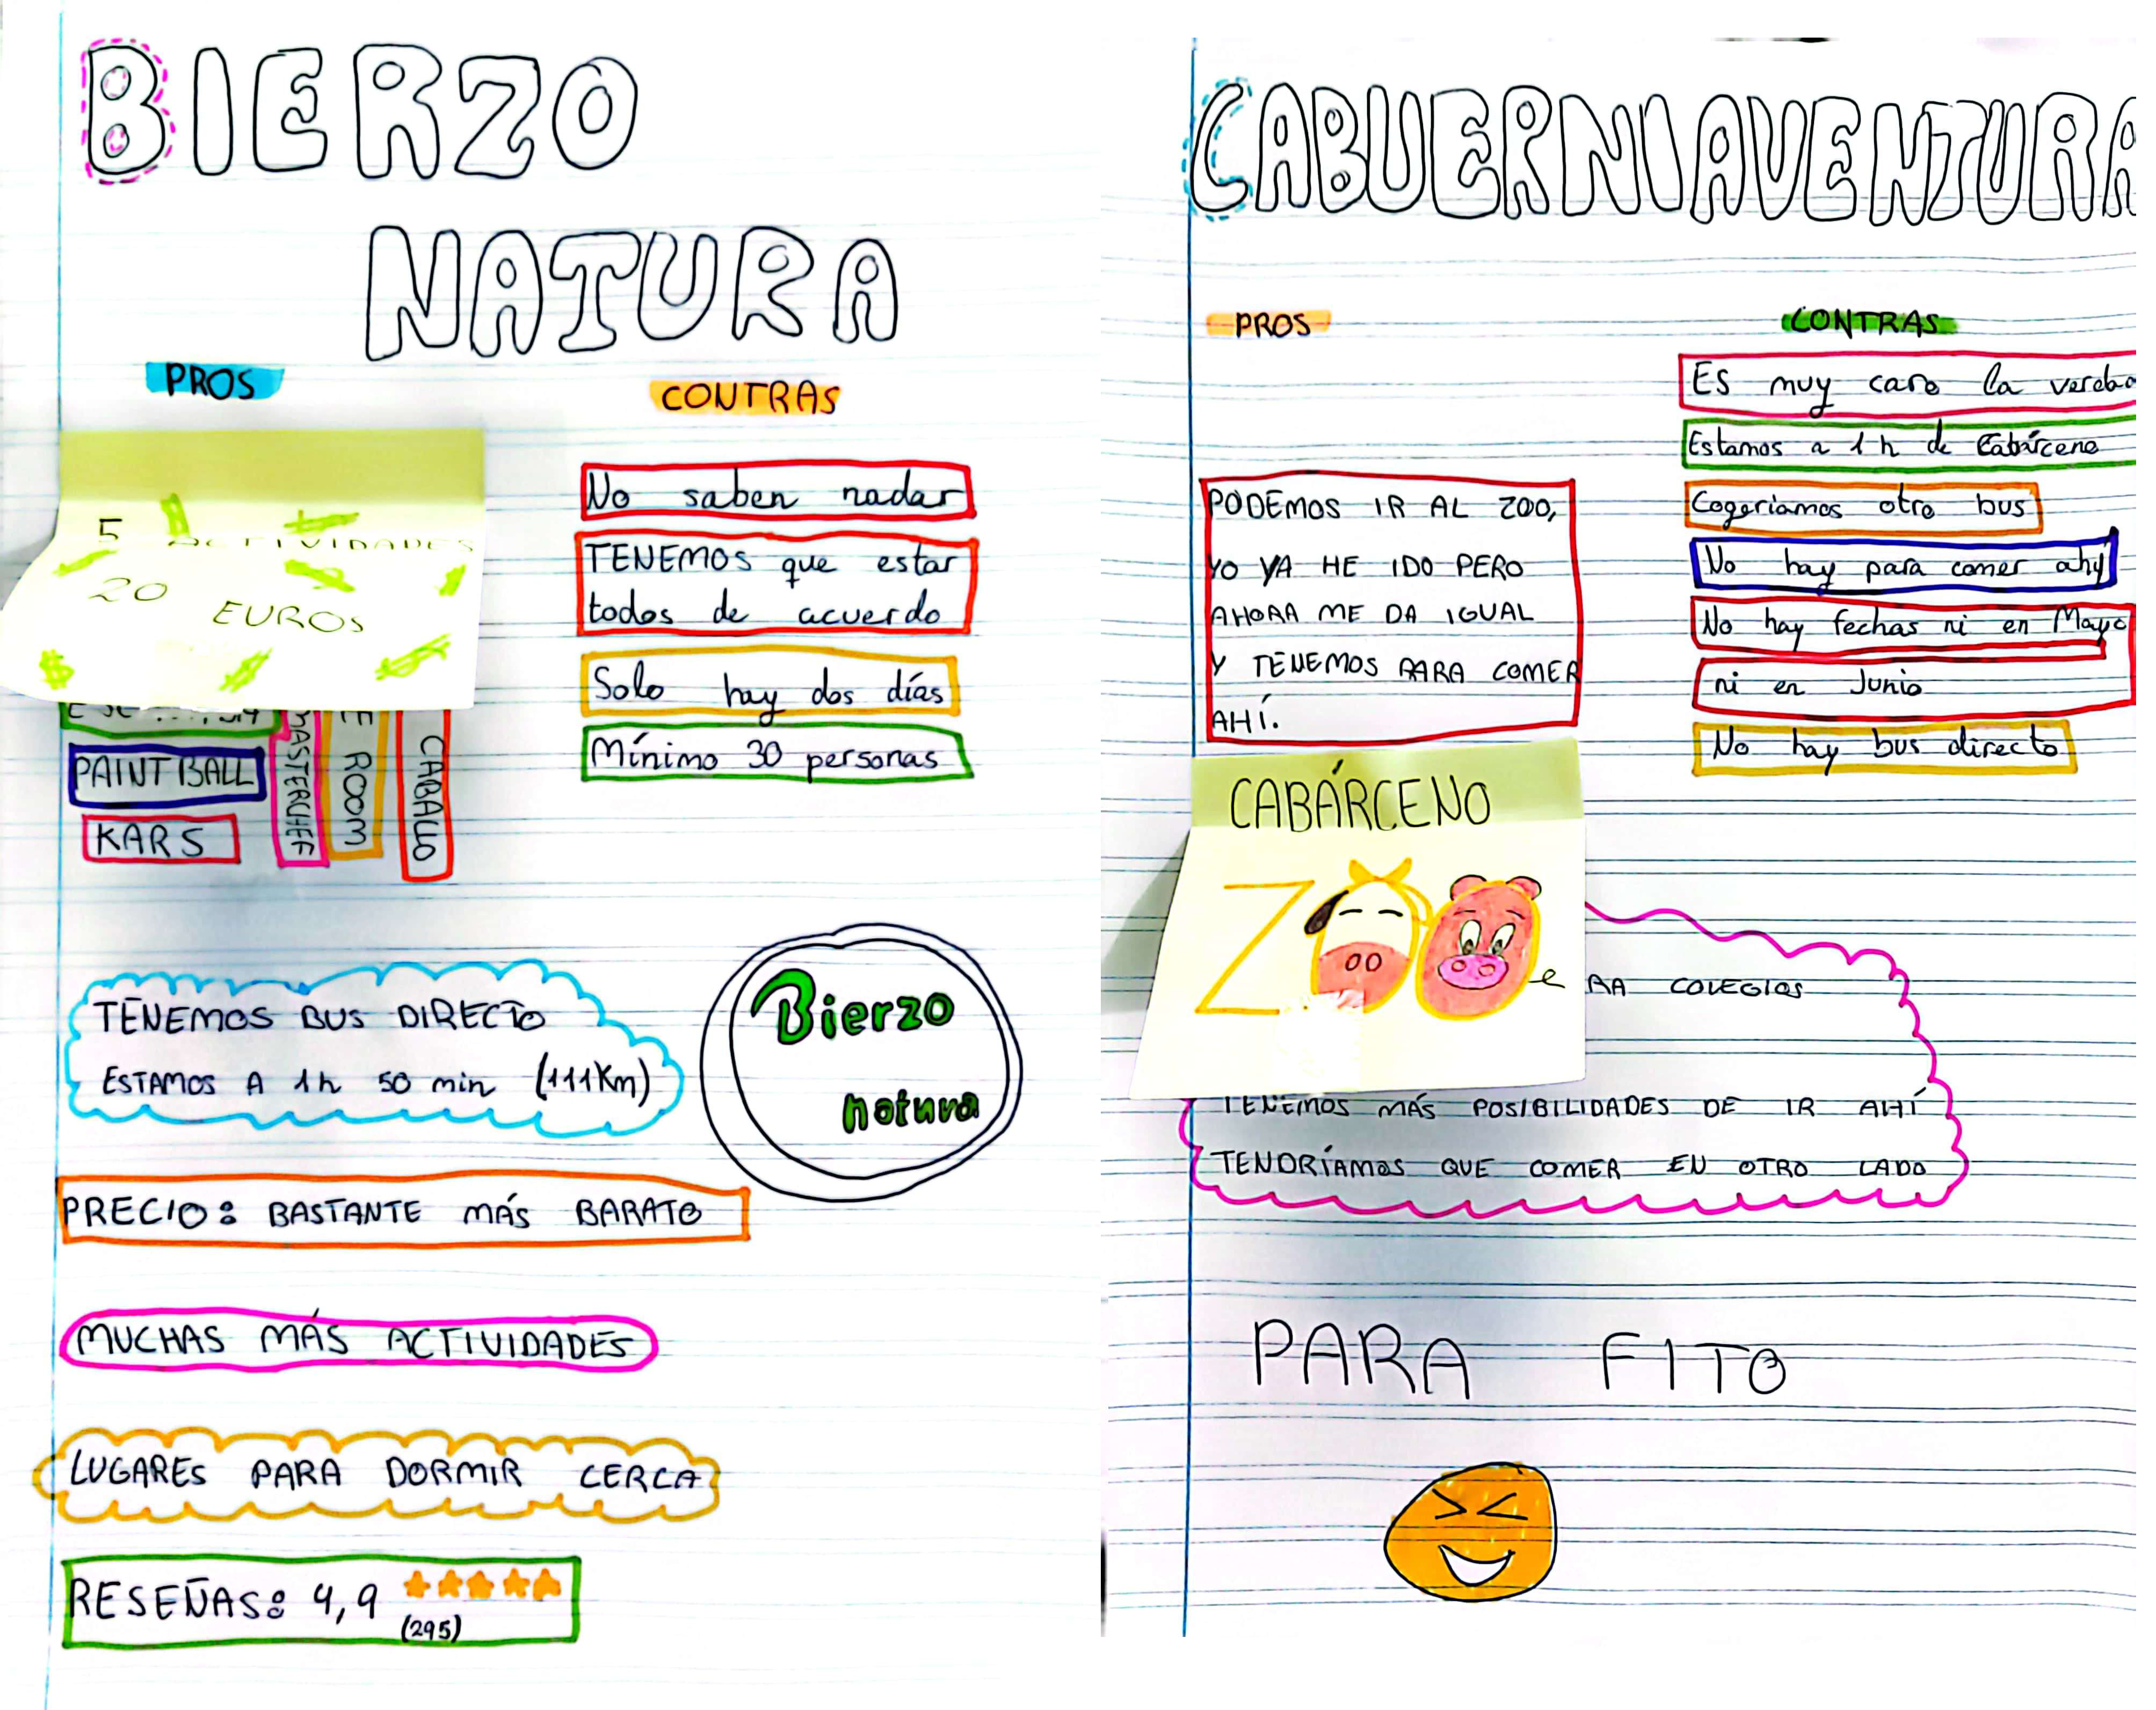 BIERZO
NATURA
PROS
5 ACTIVIDADES
20
EUROS
PAINTBALL
KARS
MASTERCHEF
ROOM
CABALLO
CONTRAS
No saben nadar
TENEMOS que estar
todos de acuerdo
Solo hay dos días
Mínimo 30 personas
TENEMOS BUS DIRECTO
ESTAMOS A 1h 50 min (111Km)
Bierzo
natura
PRECIO: BASTANTE MÁS BARATO
MUCHAS MÁS ACTIVIDADES
LUGARES PARA DORMIR CERCA
RESEÑAS: 4,9
(295)
CABUERNIAVENTURA
PROS
PODEMOS IR AL ZOO,
YO YA HE IDO PERO
AHORA ME DA IGUAL
Y TENEMOS PARA COMER
AHÍ.
CONTRAS
ES muy caro la
Estamos a 1 h de Cabárceno
Cogeriamos otro bus
No hay para comer ahý
No hay fechas ni en Mayo
ni en Junio
No hay bus directo
CABÁRCENO
ZOO
RA COLEGIOS
TENEMOS MÁS POSIBILIDADES DE IR AHÍ
TENDRÍAMOS QUE COMER EN OTRO LADO
PARA FITO